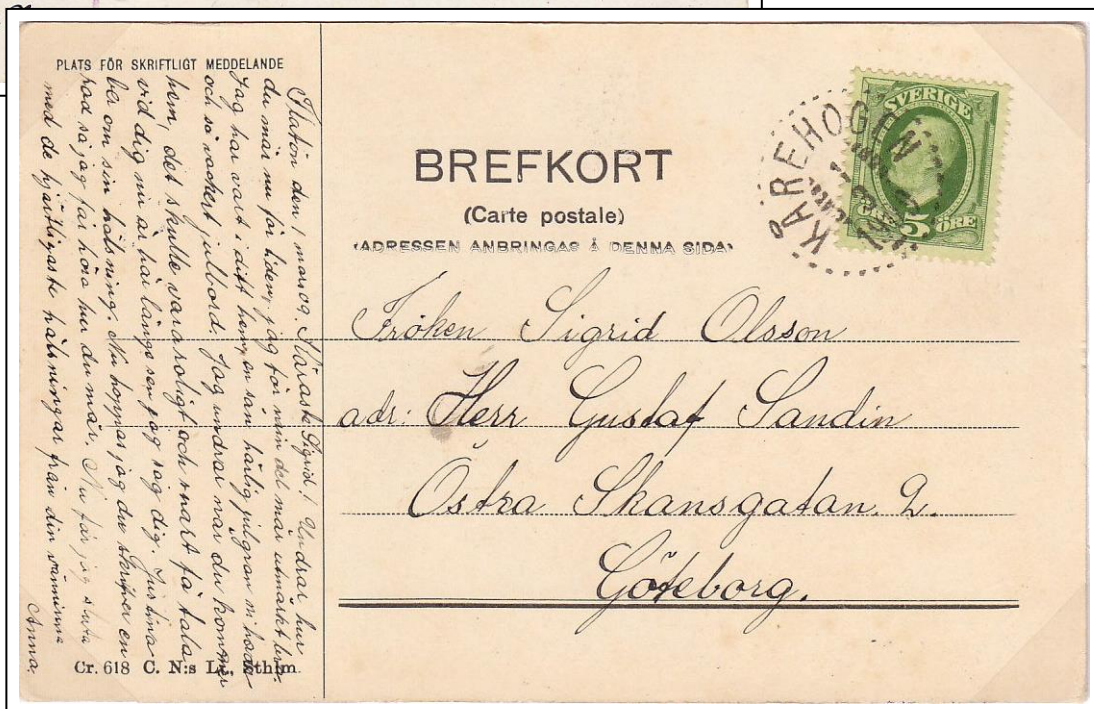 PLATS FÖR SKRIFTLIGT MEDDELANDE
Flatön den 1 mars 09. Käraste Sigrid! Undrar hur
du mår nu för tiden, jag för min del mår utmärkt bra.
Jag har vart i ditt hem, en sån härlig julgran ni hade
och så vackert julbord. Jag undrar när du kommer
hem, det skulle vara roligt och snart få tala
vid dig nu är här länge sen jag såg dig. Justina
ba om sin hälsning. Nu hoppas jag du skrifver en
rad så jag får höra hur du mår. Nu får jag sluta
med de hjärtligaste hälsningar från din väninna
Anna.
Cr. 618 C. N:s Lt., Sthlm.
BREFKORT
(Carte postale)
(ADRESSEN ANBRINGAS Å DENNA SIDA)
SVERIGE
5
ÖRE
KÅREHOGEN
Fröken Sigrid Olsson
adr: Herr Gustaf Sandin
Östra Skansgatan. 2.
Göteborg.